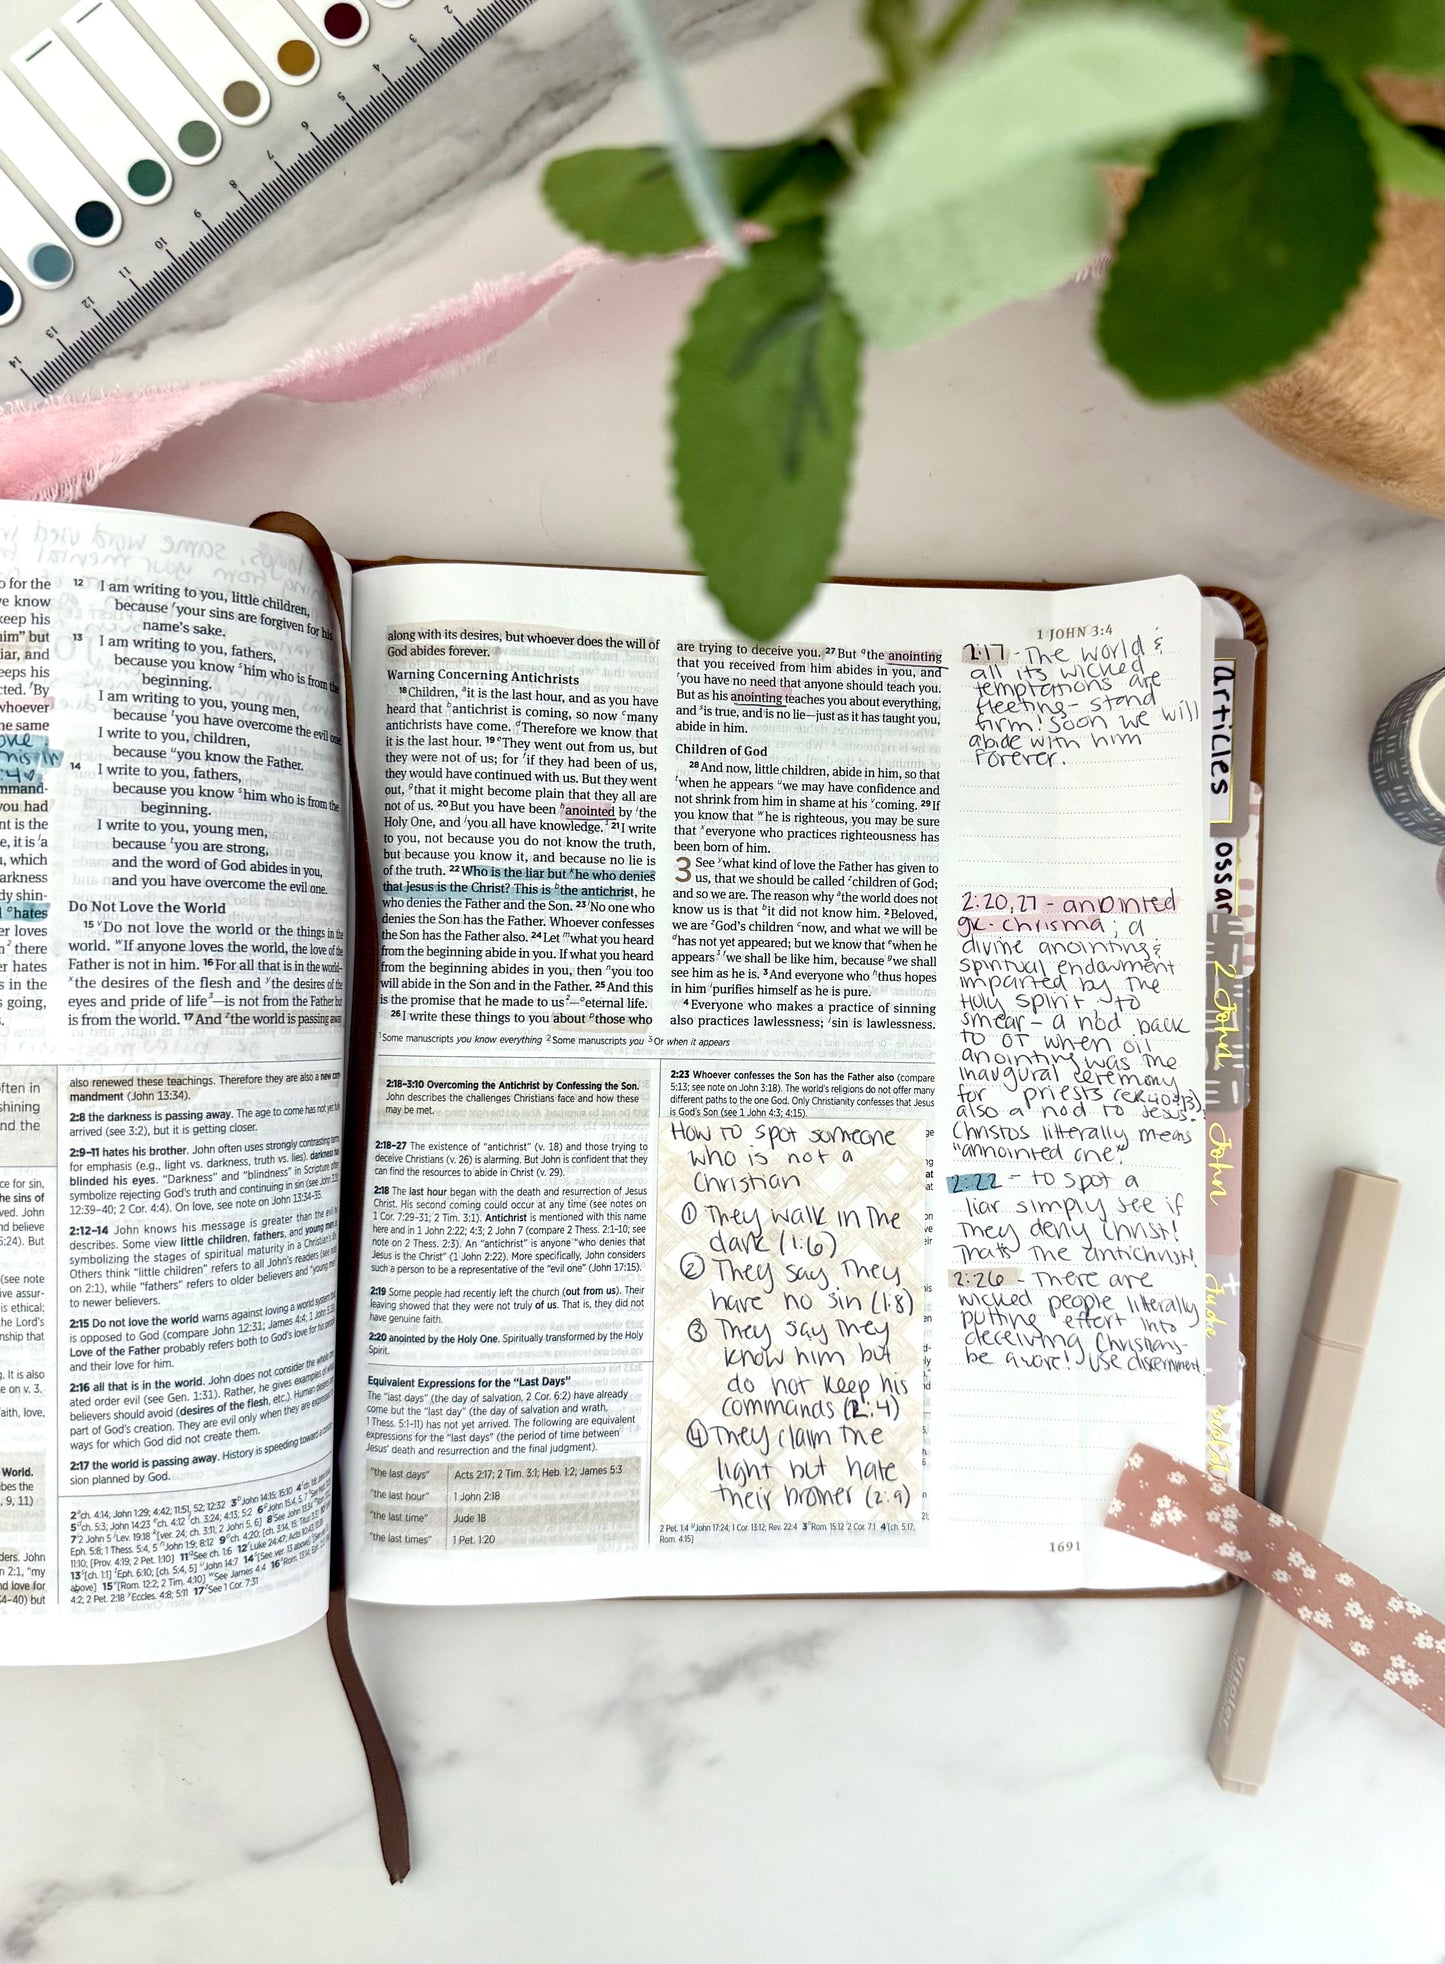 2
3
4
5
6
7
8
9
10
11
12
13
14
o for the
e know
keep his
him" but
iar, and
eeps his
cted. By
whoever
he same
mmand-
you had
nt is the
e, it is a
, which
arkness
dy shin-
hates
er loves
there
er hates
s in the
going,
12 I am writing to you, little children,
because your sins are forgiven for his
name's sake.
13 I am writing to you, fathers,
because you know him who is from the
beginning.
I am writing to you, young men,
because you have overcome the evil one.
I write to you, children,
because you know the Father.
14 I write to you, fathers,
because you know him who is from the
beginning.
I write to you, young men,
because you are strong,
and the word of God abides in you,
and you have overcome the evil one.
Do Not Love the World
15 Do not love the world or the things in the
world. If anyone loves the world, the love of the
Father is not in him. 16 For all that is in the world—
the desires of the flesh and the desires of the
eyes and pride of life—is not from the Father but
is from the world. 17 And the world is passing away
also renewed these teachings. Therefore they are also a new com-
mandment (John 13:34).
2:8 the darkness is passing away. The age to come has not yet fully
arrived (see 3:2), but it is getting closer.
2:9–11 hates his brother. John often uses strongly contrasting terms
for emphasis (e.g., light vs. darkness, truth vs. lies). darkness has
blinded his eyes. "Darkness" and "blindness" in Scripture often
symbolize rejecting God's truth and continuing in sin (see John
12:39–40; 2 Cor. 4:4). On love, see note on John 13:34–35.
2:12–14 John knows his message is greater than the evil he
describes. Some view little children, fathers, and young men as
symbolizing the stages of spiritual maturity in a Christian's life.
Others think "little children" refers to all John's readers (see note
on 2:1), while "fathers" refers to older believers and "young men"
to newer believers.
2:15 Do not love the world warns against loving a world system that
is opposed to God (compare John 12:31; James 4:4; 1 John 5:19).
Love of the Father probably refers both to God's love for his people
and their love for him.
2:16 all that is in the world. John does not consider the whole cre-
ated order evil (see Gen. 1:31). Rather, he gives examples of what
believers should avoid (desires of the flesh, etc.). Human desires are
part of God's creation. They are evil only when they are expressed in
ways for which God did not create them.
2:17 the world is passing away. History is speeding toward a conclu-
sion planned by God.
along with its desires, but whoever does the will of
God abides forever.
Warning Concerning Antichrists
18 Children, it is the last hour, and as you have
heard that antichrist is coming, so now many
antichrists have come. Therefore we know that
it is the last hour. 19 They went out from us, but
they were not of us; for if they had been of us,
they would have continued with us. But they went
out, that it might become plain that they all are
not of us. 20 But you have been anointed by the
Holy One, and you all have knowledge. 21 I write
to you, not because you do not know the truth,
but because you know it, and because no lie is
of the truth. 22 Who is the liar but he who denies
that Jesus is the Christ? This is the antichrist, he
who denies the Father and the Son. 23 No one who
denies the Son has the Father. Whoever confesses
the Son has the Father also. 24 Let what you heard
from the beginning abide in you. If what you heard
from the beginning abides in you, then you too
will abide in the Son and in the Father. 25 And this
is the promise that he made to us—eternal life.
26 I write these things to you about those who
are trying to deceive you. 27 But the anointing
that you received from him abides in you, and
you have no need that anyone should teach you.
But as his anointing teaches you about everything,
and is true, and is no lie—just as it has taught you,
abide in him.
Children of God
28 And now, little children, abide in him, so that
when he appears we may have confidence and
not shrink from him in shame at his coming. 29 If
you know that he is righteous, you may be sure
that everyone who practices righteousness has
been born of him.
3 See what kind of love the Father has given to
us, that we should be called children of God;
and so we are. The reason why the world does not
know us is that it did not know him. 2 Beloved,
we are God's children now, and what we will be
has not yet appeared; but we know that when he
appears we shall be like him, because we shall
see him as he is. 3 And everyone who thus hopes
in him purifies himself as he is pure.
4 Everyone who makes a practice of sinning
also practices lawlessness; sin is lawlessness.
1 Some manuscripts you know everything 2 Some manuscripts you 3 Or when it appears
2:18–3:10 Overcoming the Antichrist by Confessing the Son.
John describes the challenges Christians face and how these
may be met.
2:18–27 The existence of "antichrist" (v. 18) and those trying to
deceive Christians (v. 26) is alarming. But John is confident that they
can find the resources to abide in Christ (v. 29).
2:18 The last hour began with the death and resurrection of Jesus
Christ. His second coming could occur at any time (see notes on
1 Cor. 7:29–31; 2 Tim. 3:1). Antichrist is mentioned with this name
here and in 1 John 2:22; 4:3; 2 John 7 (compare 2 Thess. 2:1-10; see
note on 2 Thess. 2:3). An "antichrist" is anyone "who denies that
Jesus is the Christ" (1 John 2:22). More specifically, John considers
such a person to be a representative of the "evil one" (John 17:15).
2:19 Some people had recently left the church (out from us). Their
leaving showed that they were not truly of us. That is, they did not
have genuine faith.
2:20 anointed by the Holy One. Spiritually transformed by the Holy
Spirit.
Equivalent Expressions for the "Last Days"
The "last days" (the day of salvation, 2 Cor. 6:2) have already
come but the "last day" (the day of salvation and wrath,
1 Thess. 5:1–11) has not yet arrived. The following are equivalent
expressions for the "last days" (the period of time between
Jesus' death and resurrection and the final judgment).
"the last days" Acts 2:17; 2 Tim. 3:1; Heb. 1:2; James 5:3
"the last hour" 1 John 2:18
"the last time" Jude 18
"the last times" 1 Pet. 1:20
2:23 Whoever confesses the Son has the Father also (compare
5:13; see note on John 3:18). The world's religions do not offer many
different paths to the one God. Only Christianity confesses that Jesus
is God's Son (see 1 John 4:3; 4:15).
How to spot someone
who is not a
Christian
① They walk in the
dark (1:6)
② They say they
have no sin (1:8)
③ They say they
know him but
do not keep his
commands (2:4)
④ They claim the
light but hate
their brother (2:9)
2 Pet. 1:4 John 17:24; 1 Cor. 13:12; Rev. 22:4 3 Rom. 15:12 2 Cor. 7:1 4 [ch. 5:17;
Rom. 4:15]
1691
1 JOHN 3:4
2:17 - The world &
all its wicked
temptations are
fleeting - stand
firm! Soon we will
abide with him
forever.
2:20,27 - anointed
gk. chrisma; a
divine anointing &
spiritual endowment
imparted by the
Holy Spirit, to
smear - a nod back
to OT when oil
anointing was the
inaugural ceremony
for priests (ex 40:13)
also a nod to Jesus!
Christos litterally means
"annointed one"
2:22 - to spot a
liar simply see if
they deny Christ!
That's the antichrist!
2:26 - There are
wicked people literally
putting effort into
deceiving Christians-
be aware! Use discernment
articles
ossar
2 John
John
Jude